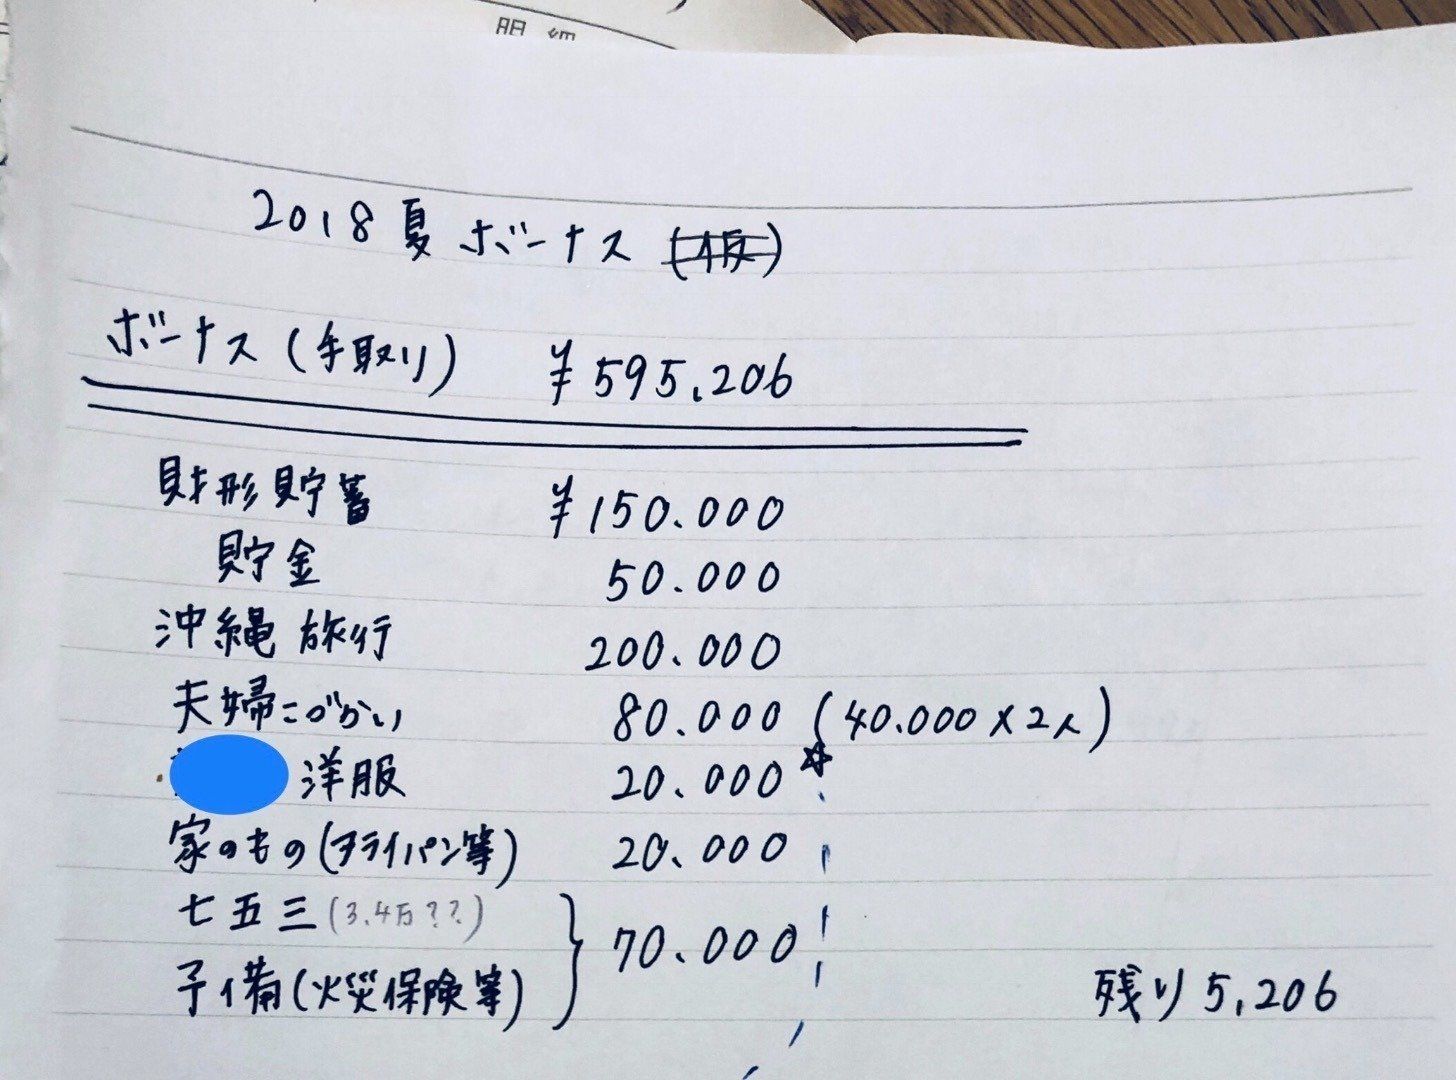 明細
2018 夏 ボーナス (仮)
ボーナス (手取り) ¥595,206
財形貯蓄 ¥150.000
貯金 50.000
沖縄 旅行 200.000
夫婦こづかい 80.000 (40.000×2人)
洋服 20.000
家のもの(フライパン等) 20.000
七五三(3.4万??)
予備(火災保険等) 70.000
残り 5,206